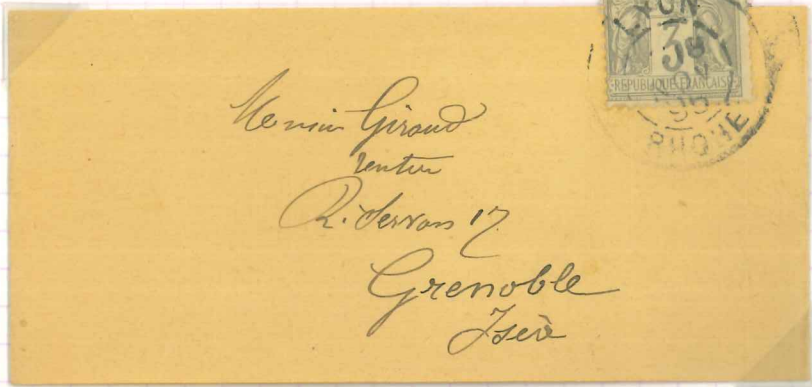 LYON
3
REPUBLIQUE FRANCAISE
RHONE
Monsieur Giraud
rentier
R. Servan 17
Grenoble
Isère